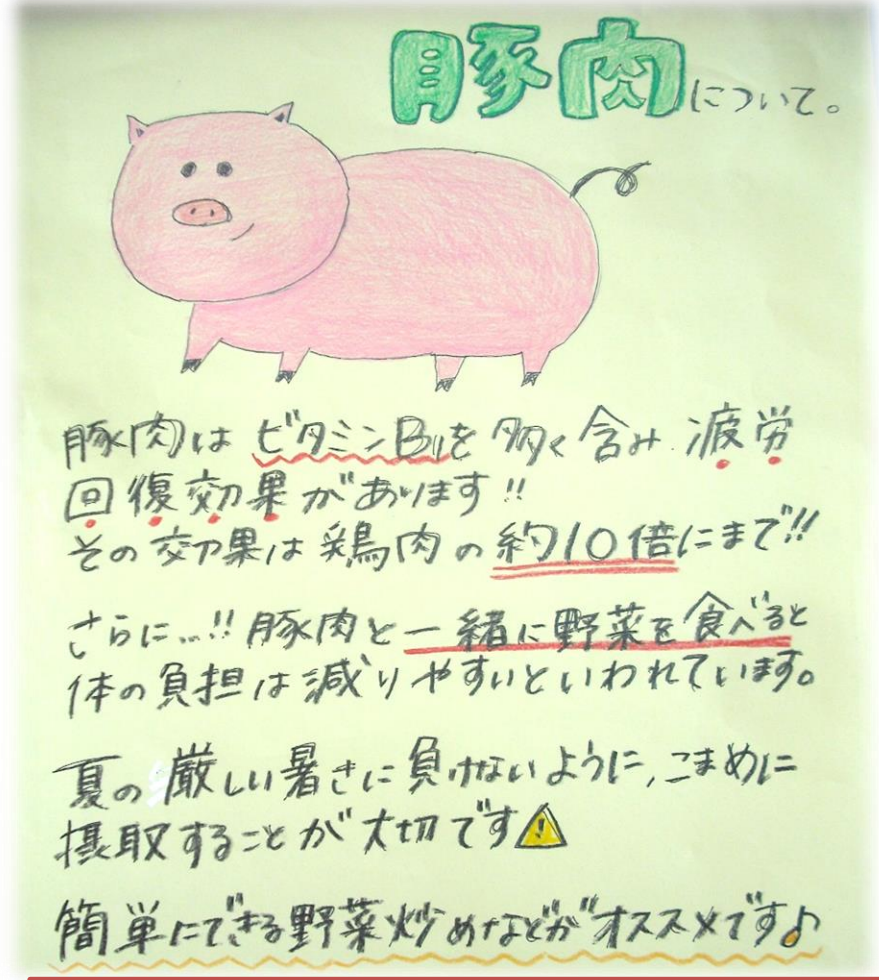 豚肉について。
豚肉は ビタミンB₁を 多く含み 疲労
回復効果があります!!
その効果は 鶏肉の約10倍にまで!!
さらに…!! 豚肉と一緒に野菜を食べると
体の負担は減りやすいといわれています。
夏の厳しい暑さに負けないように、こまめに
摂取することが大切です⚠
簡単にできる野菜炒めなどがオススメです♪